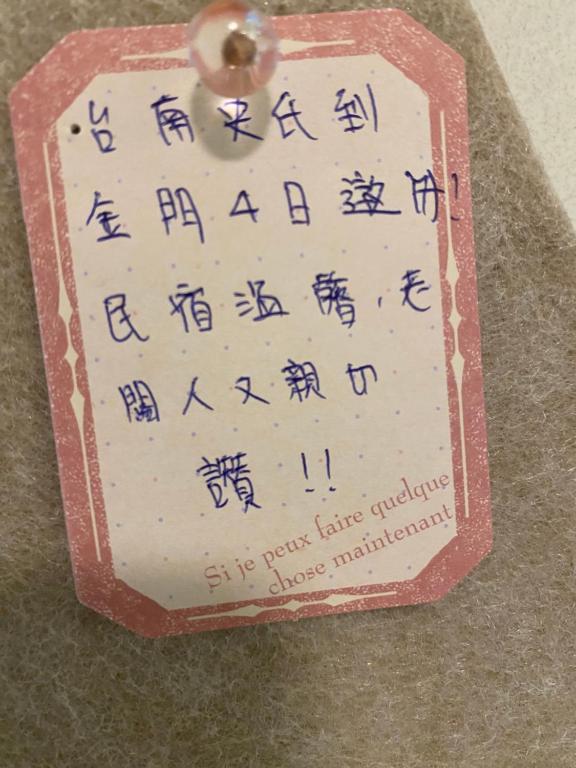 台南夫氏到
金門4日遊!
民宿溫馨,老
闆人又親切
讚!!
Si je peux faire quelque
chose maintenant